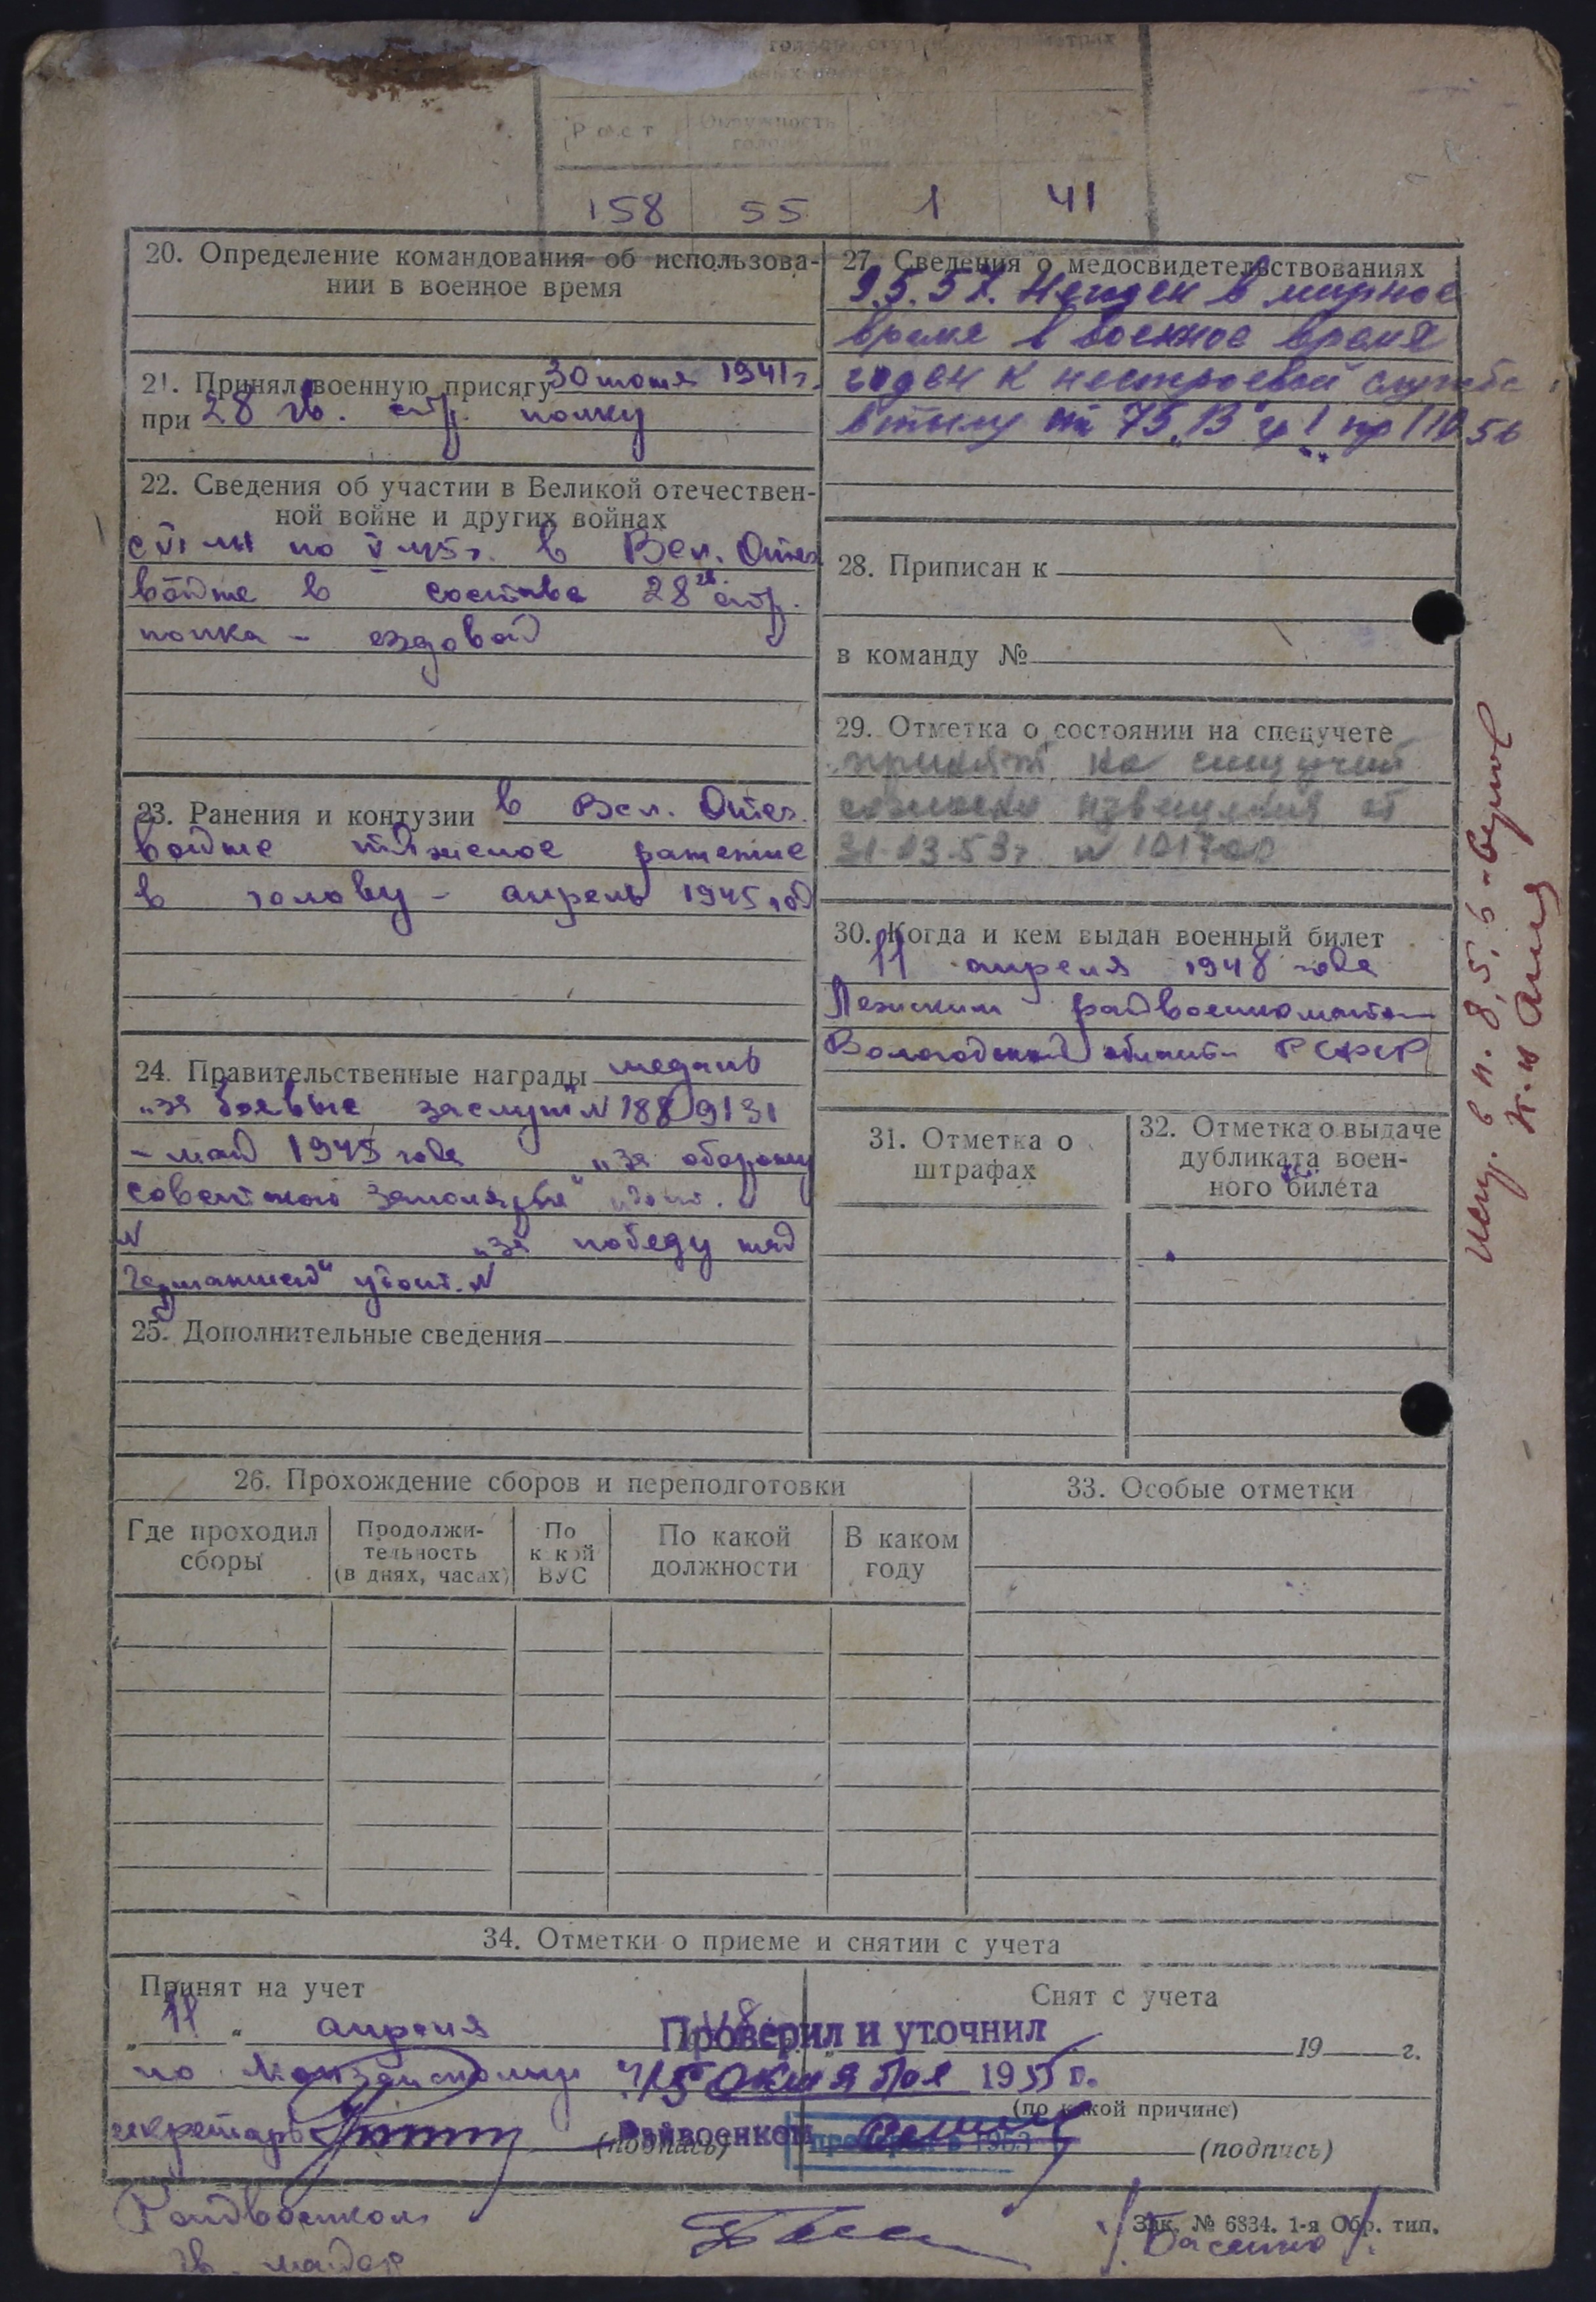 Рост Окружность
158 55 1 41
20. Определение командования об использова-
нии в военное время
21. Принял военную присягу 30 июня 1941 г.
при 28 гв. стр. полку
22. Сведения об участии в Великой отечествен-
ной войне и других войнах
с VI 41 по V 45 г. в Вел. Отеч.
войне в составе 28 гв. стр.
полка - ездовой
23. Ранения и контузии в Вел. Отеч.
войне тяжелое ранение
в голову - апрель 1945 год
24. Правительственные награды медаль
"за боевые заслуги" N 1889131
- май 1945 года "за оборону
советского заполярья" удост.
N "за победу над
Германией" удост. N
25. Дополнительные сведения
27. Сведения о медосвидетельствованиях
9.5.57. Негоден в мирное
время в военное время
годен к нестроевой службе
в тылу ст 75 "В" гр I пр 110 56
28. Приписан к
в команду №
29. Отметка о состоянии на спецучете
принят на спецучет
согласно извещения от
31.03.53 г. N 101700
30. Когда и кем выдан военный билет
11 апреля 1948 года
Лежским райвоенкоматом
Вологодской области РСФСР
31. Отметка о
штрафах
32. Отметка о выдаче
дубликата воен-
ного билета
в п. 8, 5, 6
26. Прохождение сборов и переподготовки
Где проходил
сборы
Продолжи-
тельность
(в днях, часах)
По
какой
ВУС
По какой
должности
В каком
году
33. Особые отметки
34. Отметки о приеме и снятии с учета
Принят на учет
"11" апреля 48
по
секретарь
(подпись)
Снят с учета
19 г.
(по какой причине)
(подпись)
Проверил и уточнил
"15" октября 1955 г.
Райвоенком
1953
Райвоенком
гв. майор
Зак. № 6834. 1-я Обр. тип.